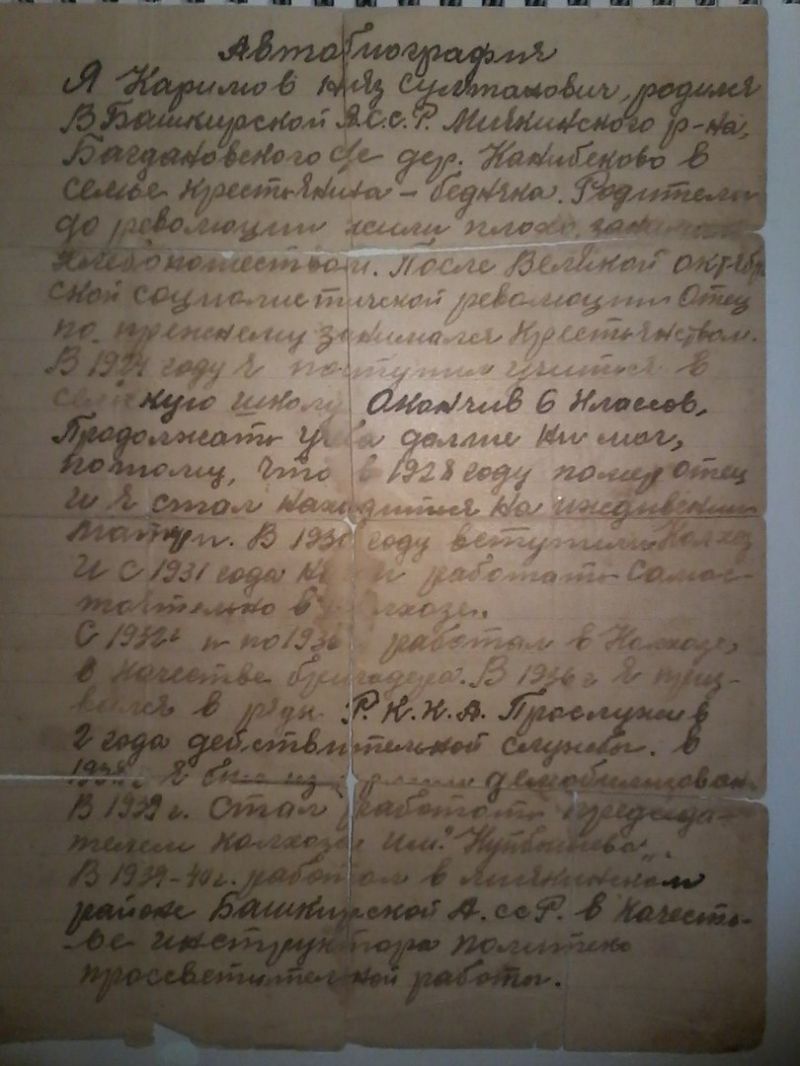 Автобиография
Я Каримов Нияз Султанович, родился
В Башкирской А.С.С.Р. Миякинского р-на,
Багдановского с/с дер. Канибеково в
семье крестьянина – бедняка. Родители
до революции жили плохо,
хлебопашеством. После Великой октябр
ской социалистической революции Отец
по прежнему занимался крестьянством.
В 1924 году я поступил учится в
сельскую школу Окончив 6 Классов,
Продолжать учёба далше ни мог,
потому, что в 1928 году помер отец
и я стал находится на иждивении
матери. В 1930 году вступили Колхоз
И с 1931 года работать самос-
тоятельно в колхозе.
С 1932 г и по 1936 работал в Колхозе,
в качестве бригадера. В 1936 г я приз-
вался в ряды Р.К.К.А. Прослужив
2 года действительной службы. в
1938 г я был из армии демобилизован
В 1939 г. стал работать председа-
телем колхоза им. "Куйбышева".
В 1939-40 г. работал в миякинском
районе Башкирской А.ссР. в качест-
ве инструктора политико
просветительной работы.